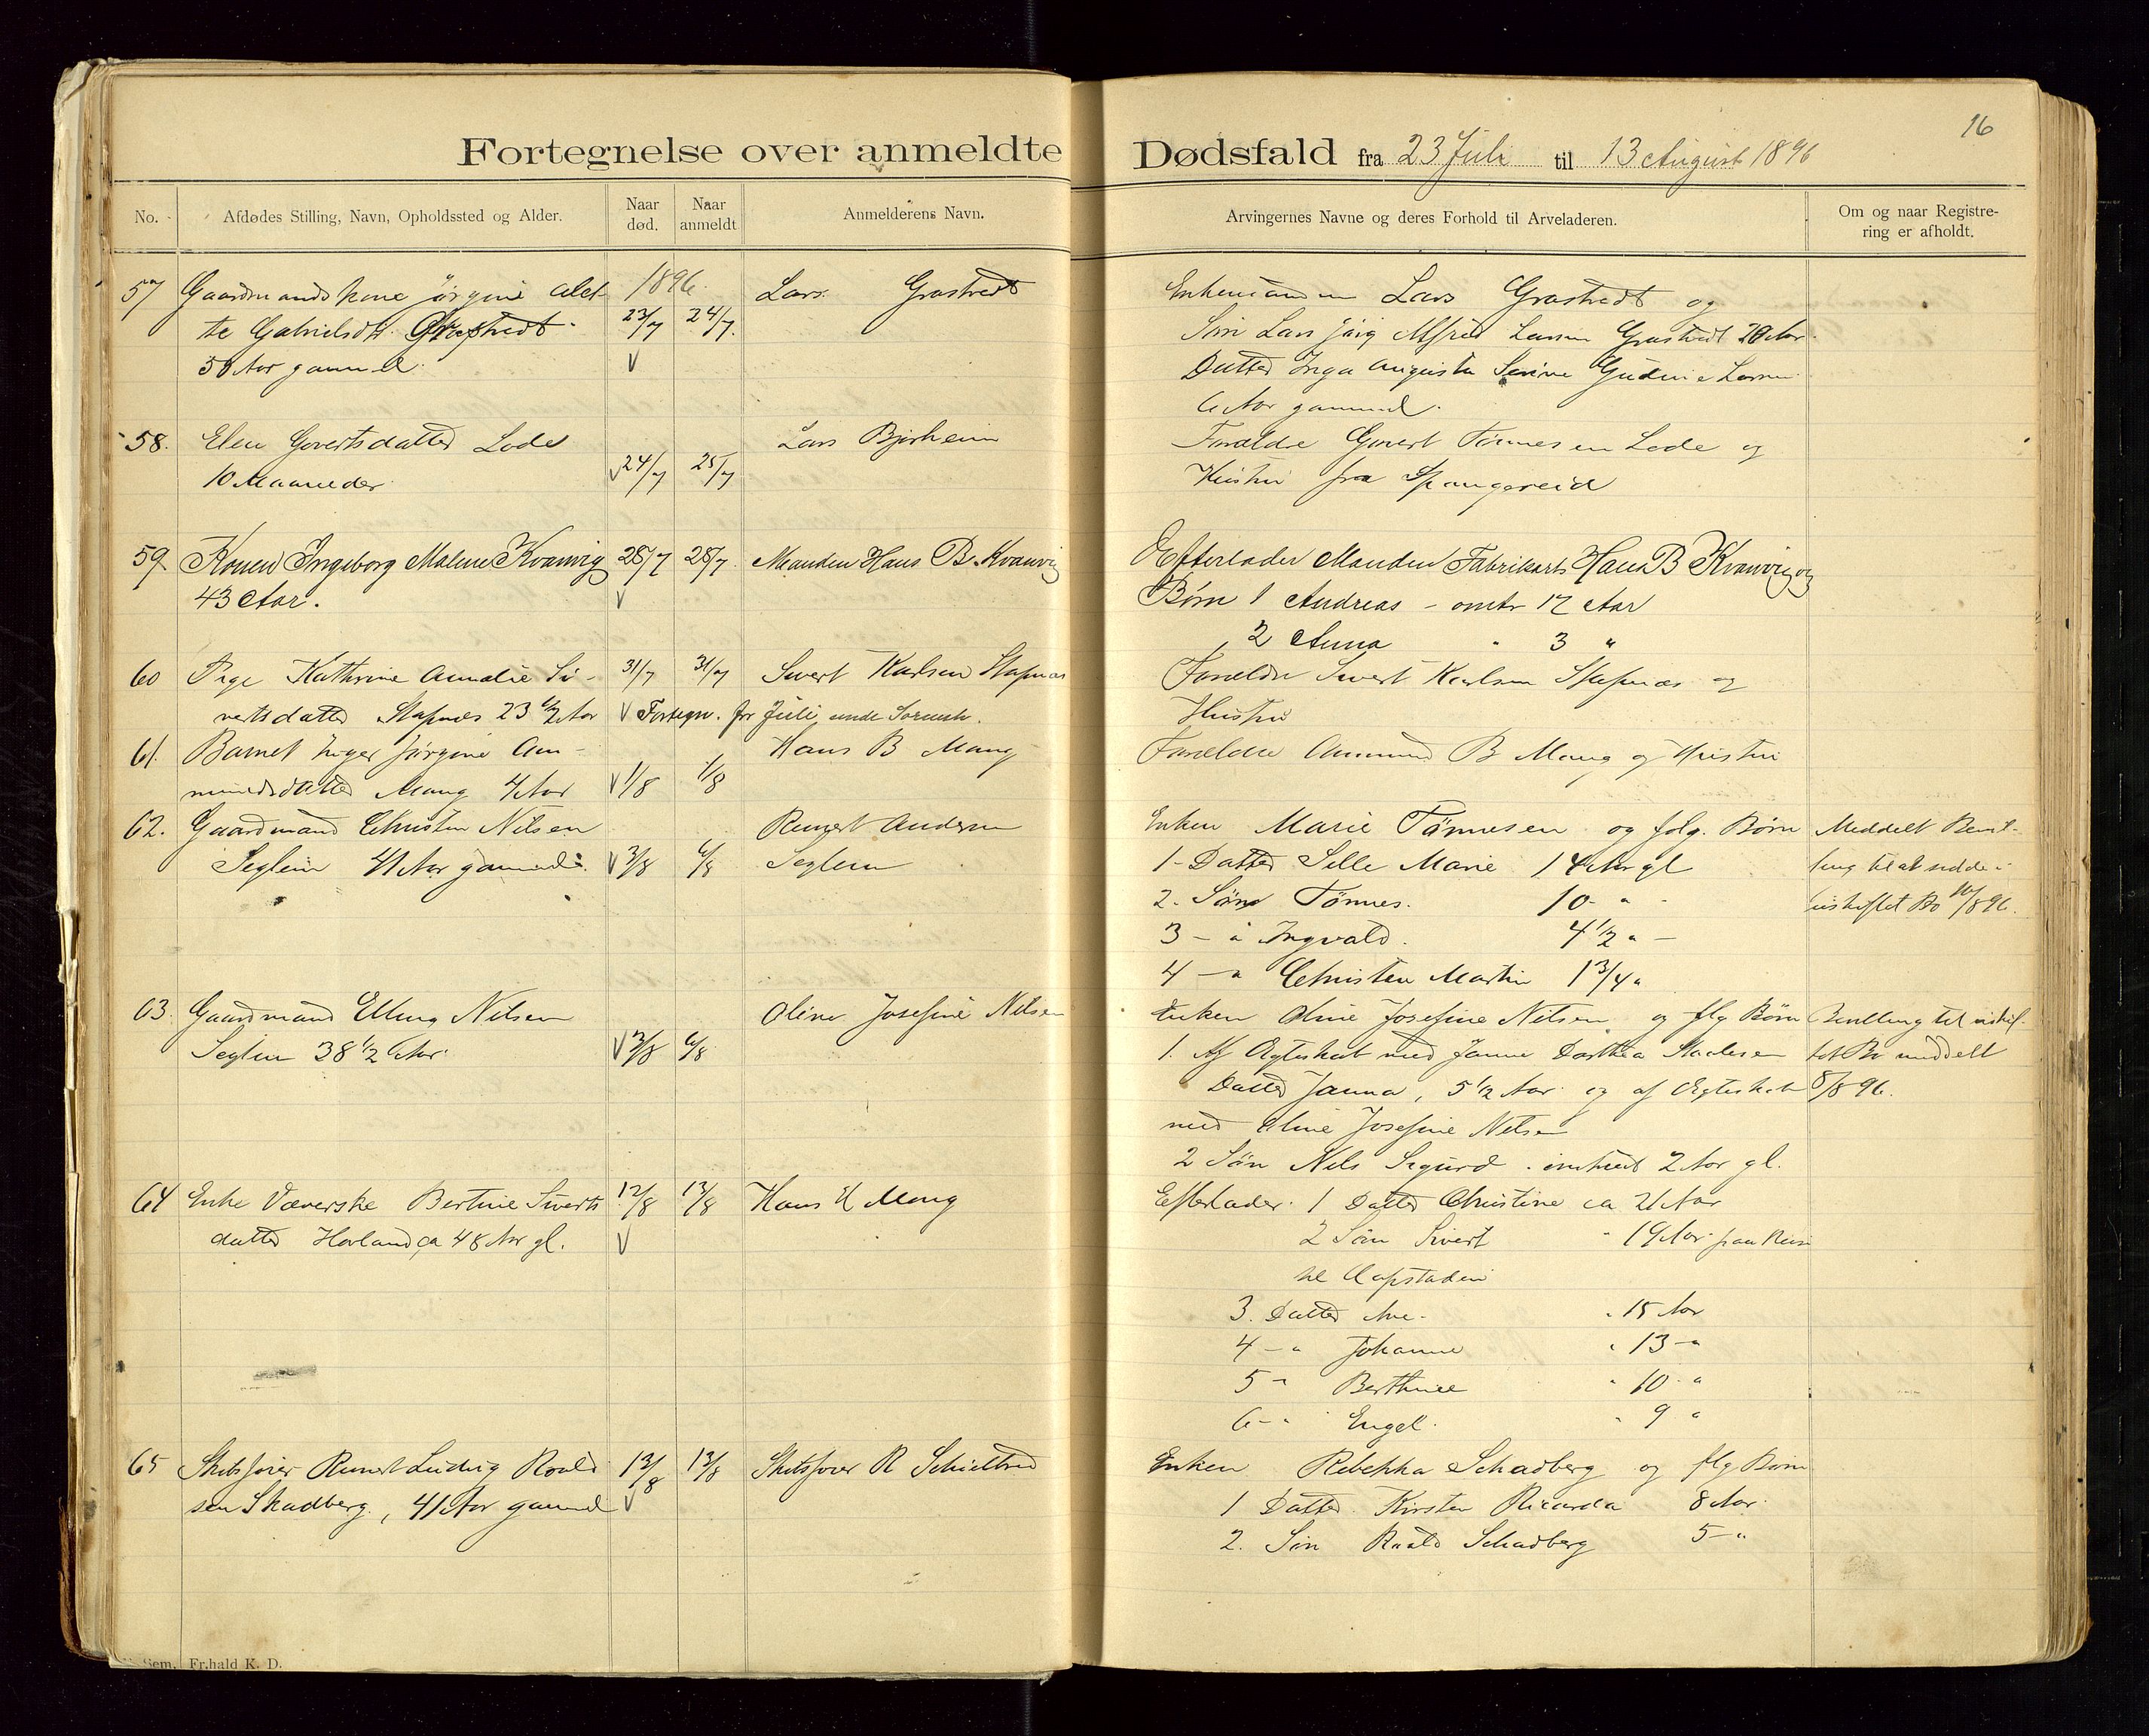 16
Fortegnelse over anmeldte Dødsfald fra 23 Juli til 13 August 1896
No. Afdødes Stilling, Navn, Opholdssted og Alder. Naar død. Naar anmeldt. Anmelderens Navn. Arvingernes Navne og deres Forhold til Arveladeren. Om og naar Registrering er afholdt.
57 Gaardmandskone Jörgine Alet- 1896. Lars Grastvedt Enkemanden Lars Grastvedt og
te Gabrielsdt. Grastvedt 23/7 24/7. Sön Lars Alfred Larsen Grastvedt 20 Aar
50 Aar gammel. V Datter Inga Augusta Serine Gudine Larsen
6 Aar gammel.
58. Elen Govertsdatter Lode Lars Bjerheim Forældre Govert Tönnesen Lode og
10 Maaneder V 24/7 25/7 Hustru fra Spangereid
59 Konen Ingeborg Malene Kvanvig 28/7 28/7. Manden Hans B. Kvanvig Efterlader Manden Fabrikarb Hans B Kvanvig og
43 Aar. V Børn 1 Andreas - omtr 12 Aar
2 Anna " 3 "
60 Pige Kathrine Amalie Si- 31/7 31/7 Sivert Karlsen Stapnes Forældre Sivert Karlsen Stapnæs og
vertsdatter Stapnes 23 1/2 Aar V Fortegn. for Juli Hustru
61. Barnet Inger Jörgine Am- Hans B Mong Forældre Ammund B Mong og Hustru
mundsdatter Mong 4 Aar V 1/8 1/8
62. Gaardmand Christen Nilsen Reinert Andersen Enken Marie Tönnesen og følg. Børn Meddelt Bevil-
Seglem 41 Aar gammel. V 3/8 6/8 Seglem 1- Datter Sille Marie 14 Aar gl ling til at sidde i
2. Sön Tönnes. 10 - " - uskiftet Bo 10/8 96.
3 - " Ingvald. 4 1/2 " -
4 - " Christen Martin 1 3/4 "
63. Gaardmand Elling Nilsen Oline Josefine Nilsen Enken Oline Josefine Nilsen og flg Børn Bevilling til uskif-
Seglem 38 1/2 Aar. V 3/8 6/8. 1. Af Ægteskab med Janne Dorthea tet Bo meddelt
Datter Janna, 5 1/2 Aar og af Ægteskab 8/8 96.
med Oline Josefine Nilsen
2 Sön Nils Sigurd . omtrent 2 Aar gl.
64 Enke Væverske Bertine Siverts 12/8 13/8 Hans H Mong Efterlader. 1 Datter Christine ca 21 Aar
datter Hovland ca 48 Aar gl. V 2 Sön Sivert " 19 Aar paa Reise
til Kapstaden
3. Datter Ane - " 15 Aar
4 - " Johanne " 13 - "
5 - Berthine " 10 - "
6 - " Engel. " 9 "
65 Skibsfører Reinert Ludvig Roald 13/8 13/8 Skibsfører R Enken Rebekka Schadberg og flg Børn
sen Skadberg, 41 Aar gammel V 1 Datter Kirsten Ricarda 8 Aar.
2. Sön Roald Schadberg 5 - "
Sem, Fr.hald K. D.